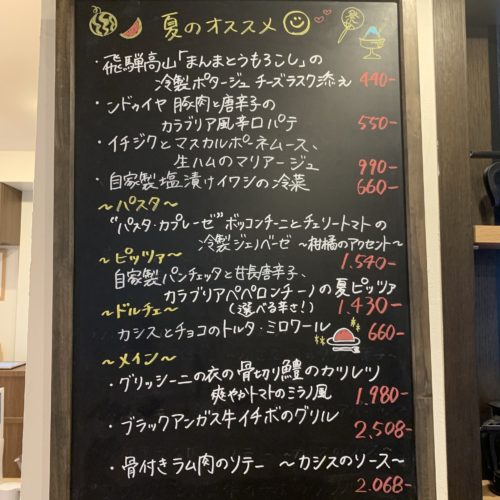 夏のオススメ
・飛騨高山「まんまとうもろこし」の
冷製ポタージュ チーズラスク添え 440-
・ンドゥイヤ 豚肉と唐辛子の
カラブリア風辛口パテ 550-
・イチジクとマスカルポーネムース、
生ハムのマリアージュ 990-
・自家製塩漬けイワシの冷菜 660-
〜パスタ〜
"パスタ・カプレーゼ" ボッコンチーニとチェリートマトの
冷製ジェノベーゼ 〜柑橘のアクセント〜
1.540-
〜ピッツァ〜
自家製パンチェッタと甘長唐辛子、
カラブリアペペロンチーノの夏ピッツァ
(選べる辛さ!) 1.430-
〜ドルチェ〜
カシスとチョコのトルタ・ミロワール 660-
〜メイン〜
・グリッシーニの衣の骨切り鱧のカツレツ
爽やかトマトのミラノ風 1.980-
・ブラックアンガス牛イチボのグリル
2.508-
・骨付きラム肉のソテー 〜カシスのソース〜
2.068-